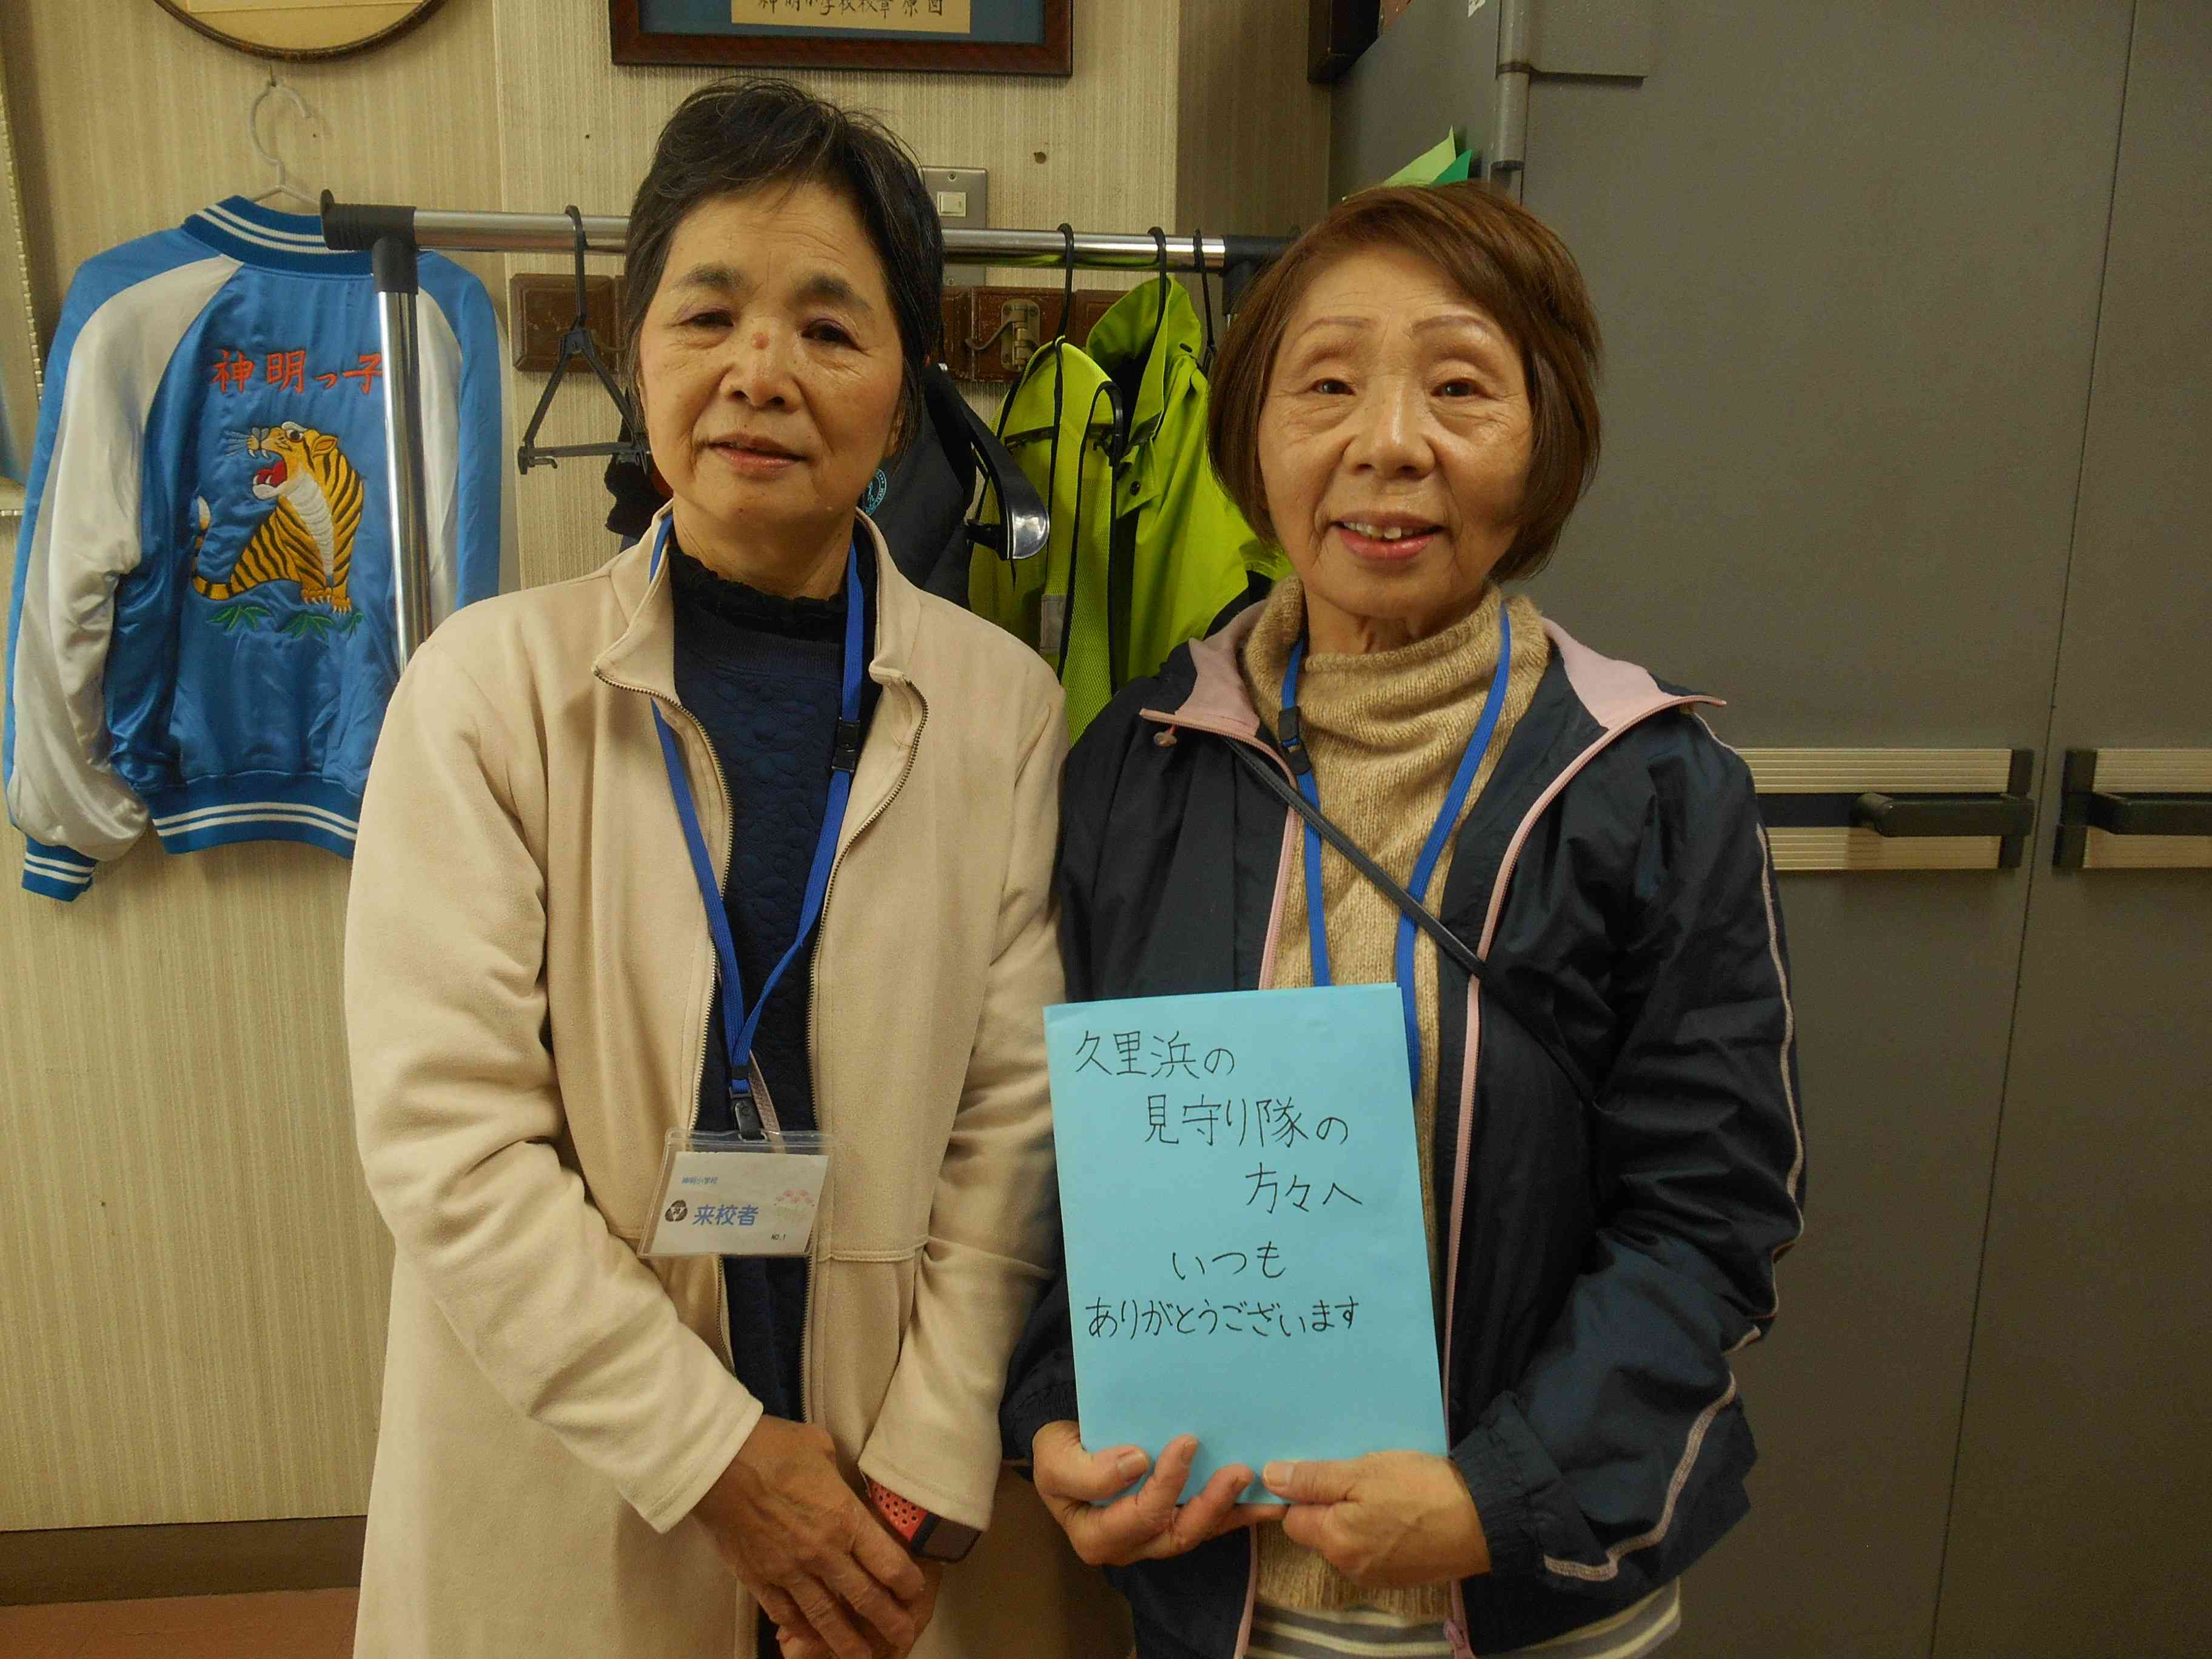 神明小学校校章原図
神明っ子
久里浜の
見守り隊の
方々へ
いつも
ありがとうございます
神明小学校
来校者
NO.1